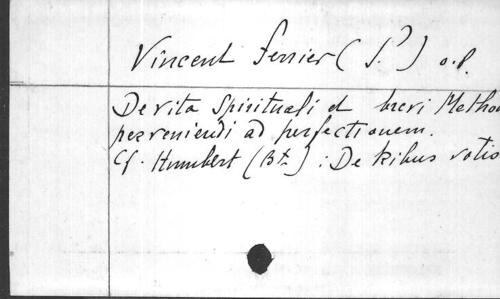 Vincent Ferrier (St) o.p.
De vita Spirituali et brevi Metho
perveniendi ad perfectionem.
Cf. Humbert (Bt.) : De tribus votis